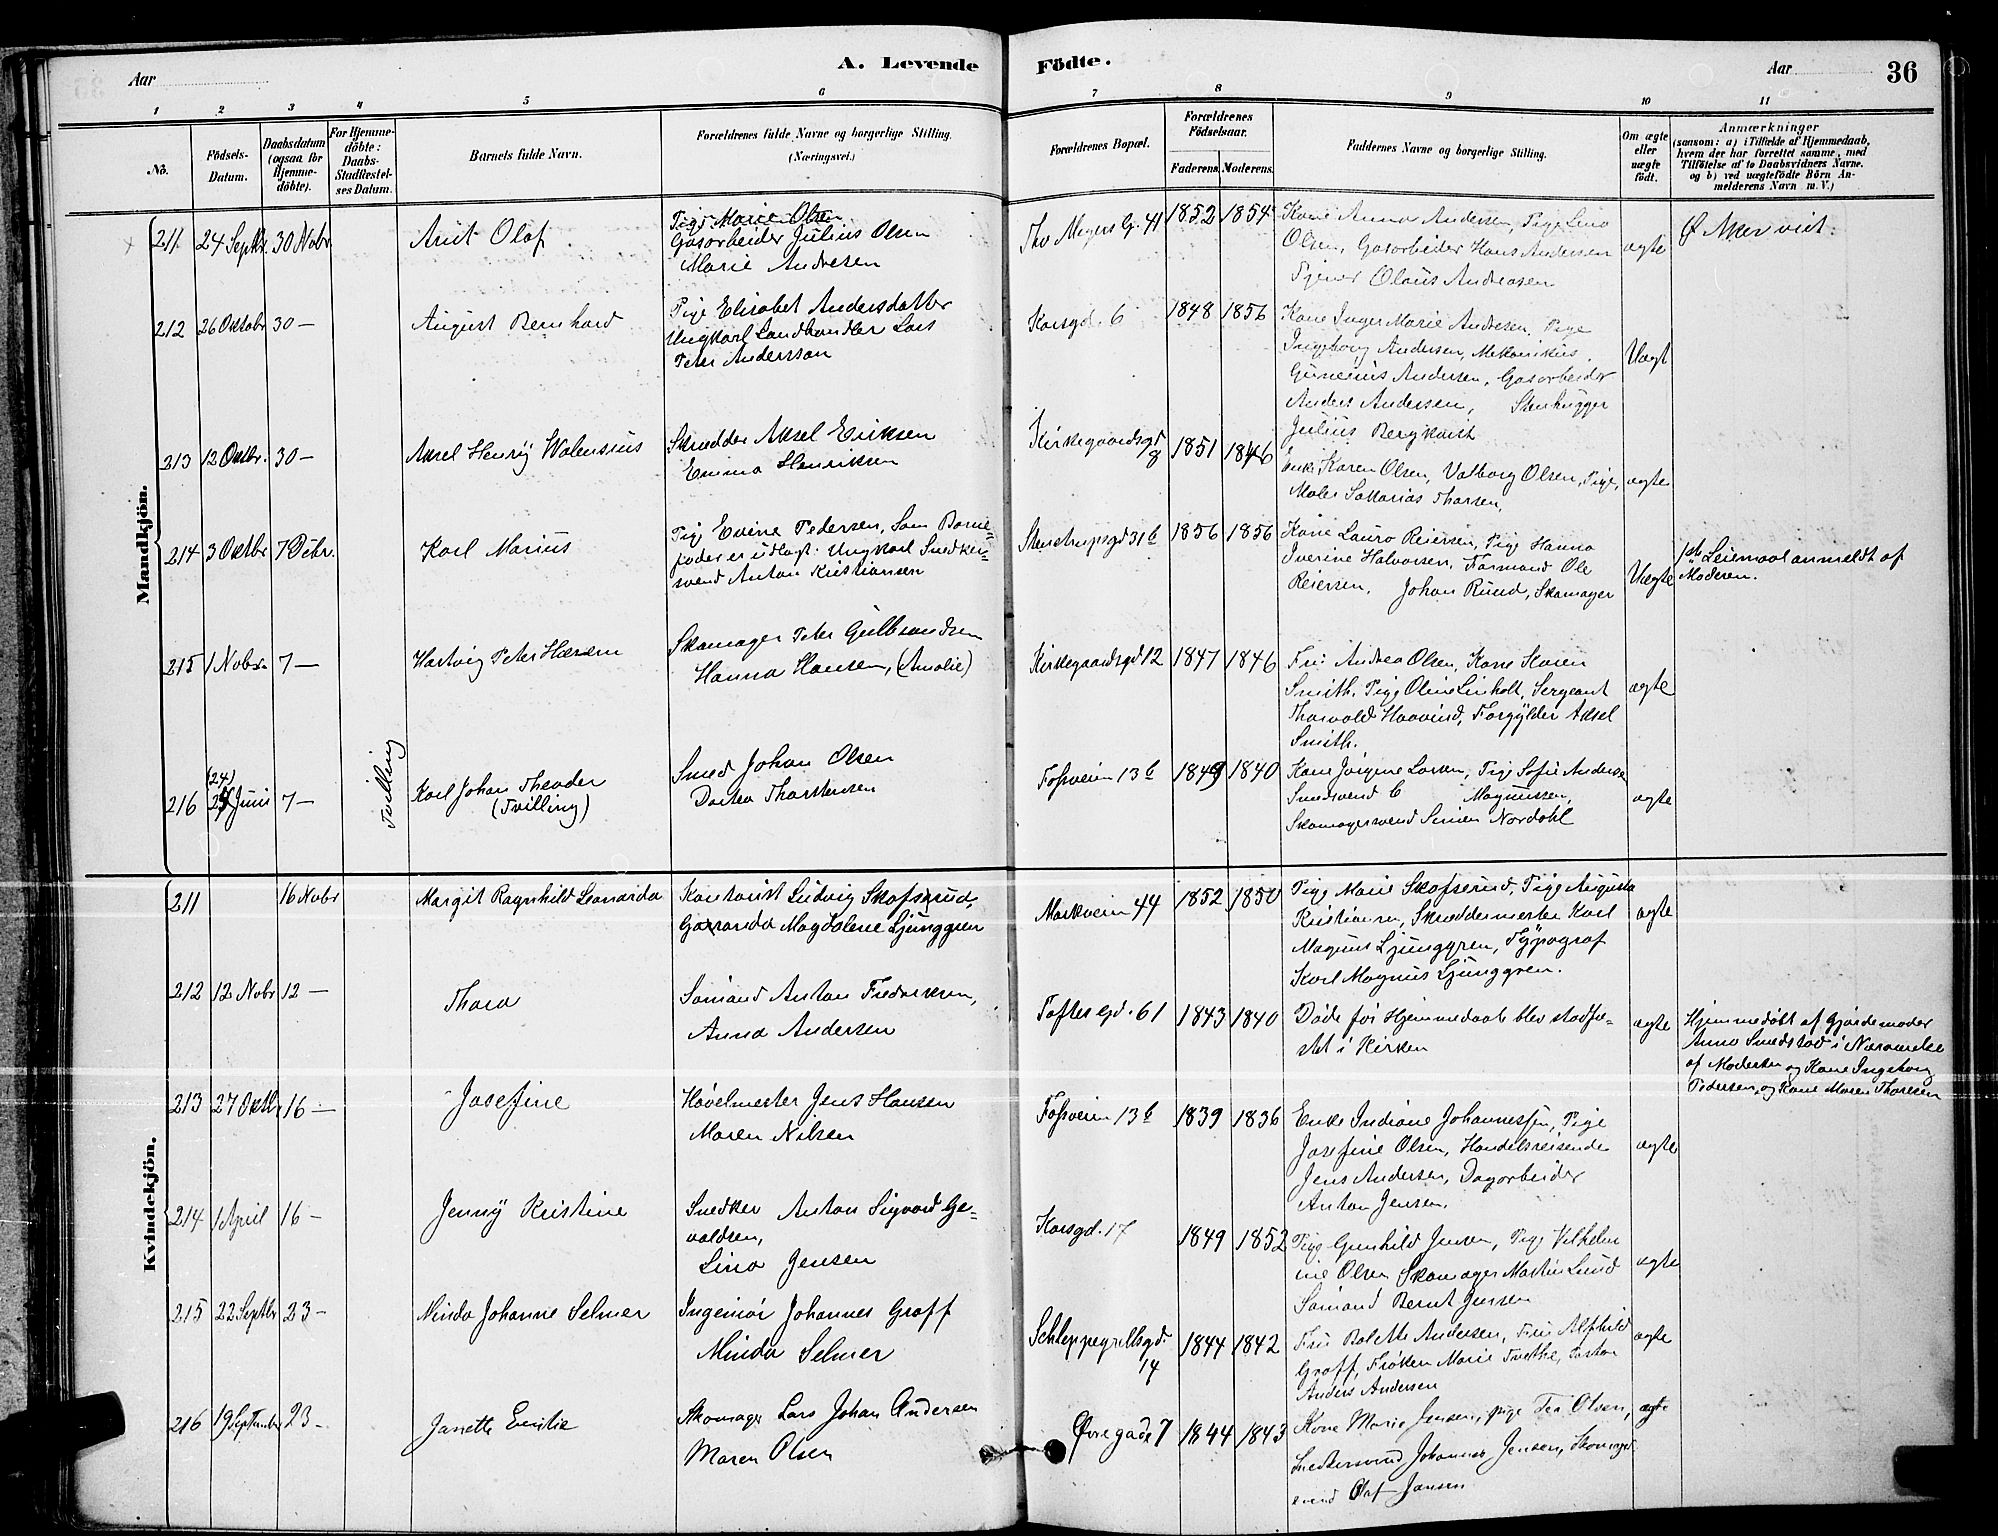 Aar
A. Levende
Födte.
Aar
36
1
2
3
4
5
6
7
8
9
10
11
No.
Födsels-
Datum.
Daabsdatum
(ogsaa for
Hjemme-
döbte).
For Hjemme-
döbte:
Daabs-
Stadfæstel-
ses Datum.
Barnets fulde Navn.
Forældrenes fulde Navne og borgerlige Stilling.
(Næringsvei.)
Forældrenes Bopæl.
Forældrenes
Födselsaar.
Faderens.
Moderens.
Faddernes Navne og borgerlige Stilling.
Om ægte
eller
uægte
födt.
Anmærkninger
(saasom: a) i Tilfælde af Hjemmedaab,
hvem der har forrettet samme, med
Tilföielse af to Daabsvidners Navne.
og b) ved uægtefödte Börn An-
melderens Navn m. V.)
Mandkjön.
211 24 Septbr 30 Nobr Arnt Olaf
Pige Marie Olsen
Gasarbeider Julius Olsen
Marie Andresen
Thv Meyers G. 41 1852 1854
Kone Anna Andersen, Pige Lina
Olsen, Gasarbeider Hans Andersen
Tjener Olaus Andreasen
ægte
Ø Aker viet.
212 26 Oktobr 30 — August Bernhard
Pige Elisabet Andersdatter
Ungkarl Landhandler Lars
Peter Andersson
Korsgd. 6 1848 1856
Kone Inger Marie Andresen, Pige
Ingeborg Andersen, Mekanikus
Gunerius Andersen, Gasarbeider
Anders Andersen, Stenhugger
Julius Bergkvist
Uægt
213 12 Oktbr. 30 — Aksel Henry Valensius
Skrædder Aksel Eriksen
Emma Henriksen
Kirkegaardsgd
8
1851 1846
Enke Karen Olsen, Valborg Olsen, Pige,
Maler Sakarias Thorsen,
ægte
214 3 Oktbr 7 Debr. Karl Marius
Pige Evine Pedersen, Som Barne-
fader er udlagt: Ungkarl Snedker-
svend Anton Kristiansen
Stenstrupsgd 31 b 1856 1856
Kone Laura Reiersen, Pige Hanna
Iverine Halvorsen, Formand Ole
Reiersen, Johan Ruud, Skomager
Uægte
1ste Leiemaal anmeldt af
Moderen.
215 1 Nobr. 7 — Hartvig Peter
Skomager Peter Gulbrandsen
Hanna Hansen, (Amalie)
Kirkegaardsgd 12 1847 1846
Fru Andrea Olsen, Kone Karen
Smith, Pige Oline Linholt, Sergeant
Thorvald Haavind, Forgylder Aksel
Smith.
ægte
(24)
216 25 Juni 7 — Tvilling Karl Johan Theodor
(Tvilling)
Smed Johan Olsen
Dortea Thorstensen
Fossveien 13 b 1849 1840
Kone Jørgine Larsen, Pige Sofie Andersen
Smedsvend C Magnussen,
Skomagersvend Simen Nordahl
ægte
Kvindekjön.
211 16 Nobr Margit Ragnhild Leonarda
Kontorist Ludvig Skofsrud,
Magdalene Ljunggren
Markveien 44 1852 1850
Pige Marie Skofsrud, Pige Augusta
Kristiansen, Skreddermester Karl
Magnus Ljunggren, Typograf
Karl Magnus Ljunggren.
ægte
212 12 Nobr 12 — Thora
Sømand Anton Fredriksen,
Anna Andersen
Toftes Gd. 61 1843 1840
Døde før Hjemmedaab blev stadfæ-
stet i Kirken
ægte
Hjemmedøbt af Gjordemoder
Anna Smedstad i Nærværelse
af Moderen og Kone Ingeborg
Pedersen, og Kone Maren Thoresen
213 27 Oktb 16 — Josefine
Høvelmester Jens Hansen
Maren Nilsen
Fossveien 13 b 1839 1836
Enke Indiane Johannessen, Pige
Josefine Olsen, Handelsreisende
Jens Andersen, Dagarbeider
Anton Jensen.
ægte
214 1 April 16 — Jenny Kristine
Snedker Anton Sigvard Ge-
valdsen,
Lina Jensen
Korsgd. 17 1849 1852
Pige Gunhild Jensen, Pige Vilhelm-
ine Olsen Skomager Martin Lund
Sømand Bernt Jensen
ægte
215 22 Septbr 23 — Minda Johanne Selmer
Ingeniør Johannes Graff
Minda Selmer
Schleppegrellsgd.
14
1844 1842
Fru Bolette Andersen, Fru Alfhild
Graff, Frøken Marie Tvethe,
Anders Andersen
ægte
216 19 September 23 — Janette Emilie
Skomager Lars Johan Andersen
Maren Olsen
Øvregade 7 1844 1843
Kone Marie Jensen, pige Tea Olsen,
Snedkersvend Johannes Jensen, Skomager
svend Olaf Jansen
ægte